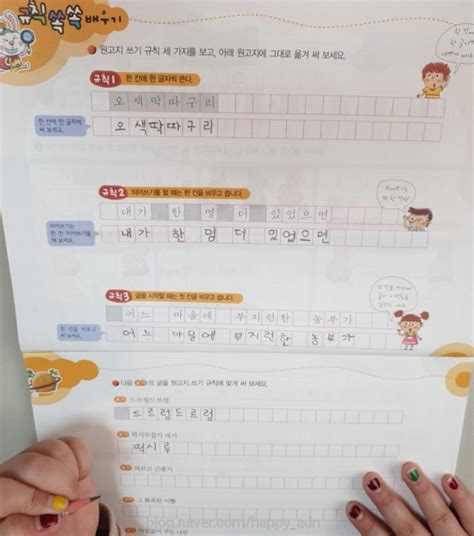 규칙 쏙쏙 배우기
원고지 쓰기 규칙 세 가지를 보고, 아래 원고지에 그대로 옮겨 써 보세요.
규칙1 한 칸에 한 글자씩 쓴다.
오색딱따구리
한 칸에 한 글자씩
써 보세요.
오색딱따구리
규칙2 띄어쓰기를 할 때는 한 칸을 비우고 씁니다.
내가 한 명 더 있었으면
띄어쓰기는
한 칸 띄어쓰기를
해 보세요.
내가 한 명 더 있었으면
규칙3 글을 시작할 때는 첫 칸을 비우고 씁니다.
어느 마을에 부지런한 농부가
첫 칸을 비우고
써 보세요.
어느 마을에 부지런한 농부가
다음 보기의 글을 원고지 쓰기 규칙에 맞게 써 보세요.
보기 드르렁드르렁
드르렁드르렁
보기
떡시루
보기
보기 그
blog.naver.com/happy_adn